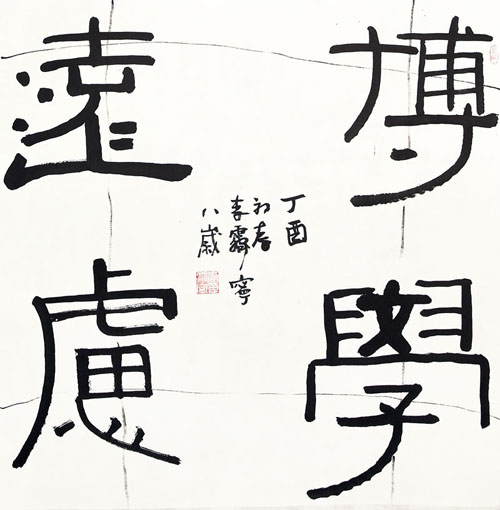 博學
遠慮
丁酉
初春
李霽寧
八歲